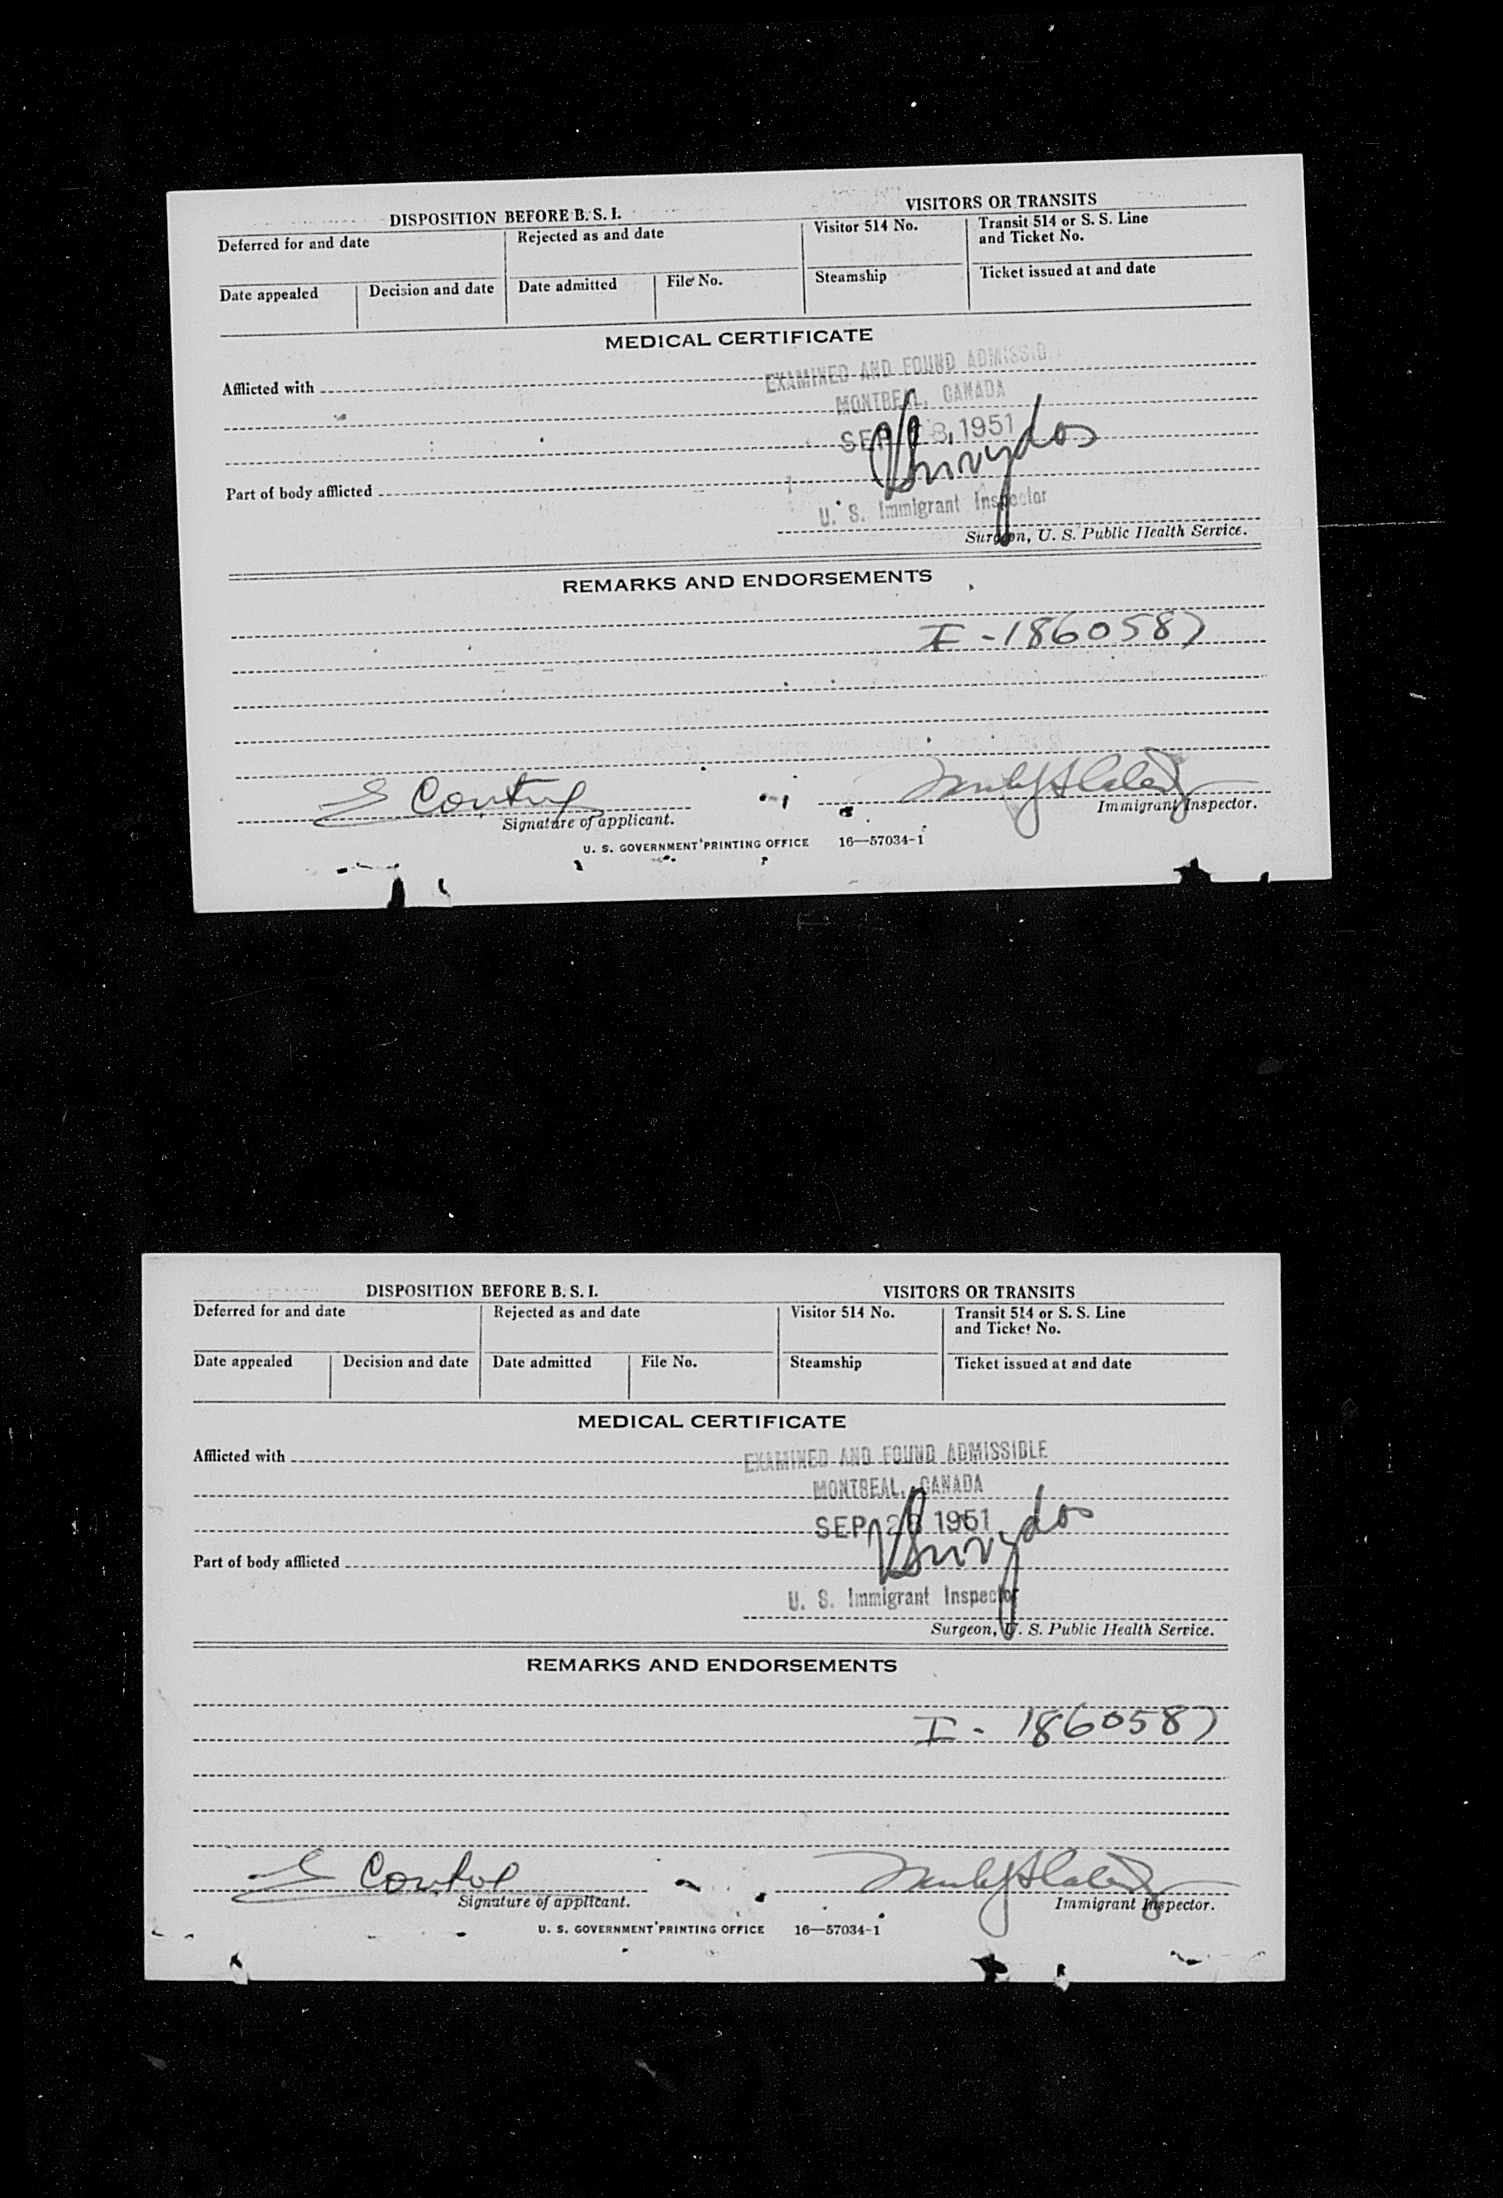 DISPOSITION BEFORE B. S. I.
VISITORS OR TRANSITS
Deferred for and date
Rejected as and date
Visitor 514 No.
Transit 514 or S. S. Line
and Ticket No.
Date appealed
Decision and date
Date admitted
File No.
Steamship
Ticket issued at and date
MEDICAL CERTIFICATE
Afflicted with
EXAMINED AND FOUND ADMISSIB
MONTREAL, CANADA
SEP 1951
Part of body afflicted
U. S. Immigrant Inspector
Surgeon, U. S. Public Health Service.
REMARKS AND ENDORSEMENTS
I - 1860587
Signature of applicant.
Immigrant Inspector.
U. S. GOVERNMENT PRINTING OFFICE 16—57034-1
DISPOSITION BEFORE B. S. I.
VISITORS OR TRANSITS
Deferred for and date
Rejected as and date
Visitor 514 No.
Transit 514 or S. S. Line
and Ticket No.
Date appealed
Decision and date
Date admitted
File No.
Steamship
Ticket issued at and date
MEDICAL CERTIFICATE
Afflicted with
EXAMINED AND FOUND ADMISSIBLE
MONTREAL, CANADA
SEP 28 1951
Part of body afflicted
U. S. Immigrant Inspector
Surgeon, U. S. Public Health Service.
REMARKS AND ENDORSEMENTS
I - 1860587
Signature of applicant.
Immigrant Inspector.
U. S. GOVERNMENT PRINTING OFFICE 16—57034-1